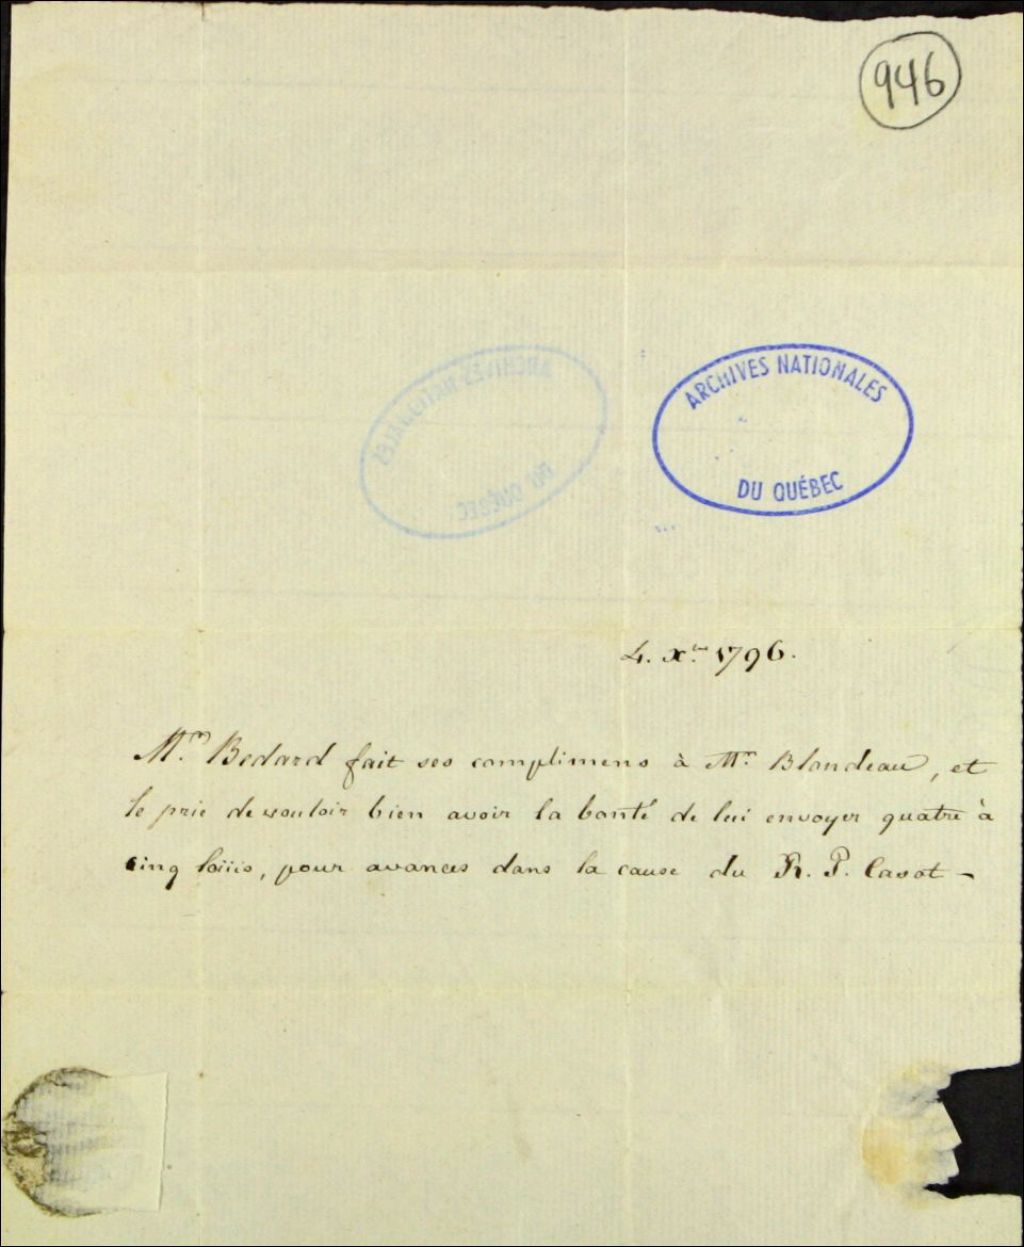 946
ARCHIVES NATIONALES
DU QUÉBEC
ARCHIVES NATIONALES
DU QUÉBEC
4. Xre 1796.
Mr. Bedard fait ses complimens à Mr. Blondeau, et
le prie de vouloir bien avoir la bonté de lui envoyer quatre à
cinq loüis, pour avances dans la cause du R. P. Casot -